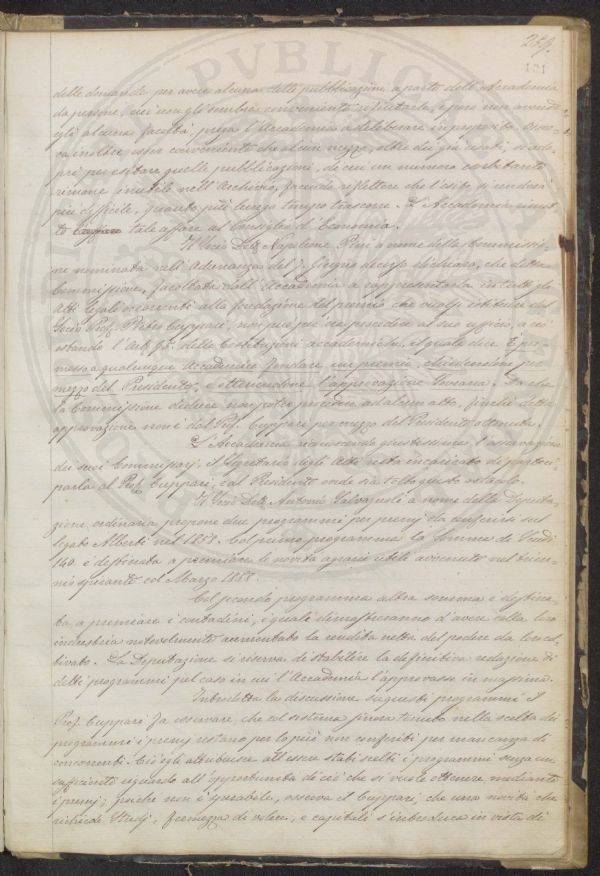 259.
131
delle domande per avere alcuna delle pubblicazioni a parte dell'Accademia
da persone, cui non gli sembra conveniente rifiutarla, e però non avendo
egli alcuna facoltà prega l'Accademia a deliberare in proposito. Osser-
va inoltre esser conveniente che alcun mezzo, oltre dei già usati, si ado-
pri per esitare quelle pubblicazioni, di cui un numero esorbitante
rimane inutile nell'Archivio, facendo riflettere che l'esito si renderà
più difficile, quanto più lungo tempo trascorre. L'Accademia rimet-
te tale affare al Consiglio di Economia.
Il Socio Dott. Napoleone Pini a nome della Commissio-
ne nominata nell'Adunanza del 7. Giugno decorso dichiara, che detta
Commissione, facoltata dall'Accademia a rappresentarla in tutti gli
Atti legali occorrenti alla fondazione del premio che vuolsi istituire dal
Socio Prof. Pietro Cuppari, non può più procedere al suo ufficio, a ciò
ostando l'Art. delle Costituzioni accademiche, il quale dice È per-
messo a qualunque Accademico fondare un premio, chiedendone per
mezzo del Presidente, e ottenendone l'approvazione Sovrana. Talché
la Commissione dedurre non poter procedere ad alcun atto, finché detta
approvazione non è dal Prof. Cuppari per mezzo del Presidente ottenuta.
L'Accademia riconoscendo giustissima l'osservazione
dei suoi Commissarj, il Segretario degli Atti resta incaricato di parteci-
parla al Prof. Cuppari, e al Presidente onde sia tolto questo ostacolo.
Il Socio Dott. Antonio Salvagnoli a nome della Deputa-
zione ordinaria propone due programmi per premj da conferirsi sul
legato Alberti nel 1858. Col primo programma la somma di Scudi
140. è destinata a premiare le novità agrarie utili avvenute nel trien-
nio spirante col Marzo 1858.
Col secondo programma altra somma è destina-
ta a premiare i contadini, i quali dimostreranno d'avere colla loro
industria notevolmente aumentato la rendita netta del podere da loro col-
tivato. La Deputazione si riserva di stabilire la definitiva redazione di
detti programmi pel caso in cui l'Accademia l'approvasse in massima.
Introdotta la discussione su questi programmi il
Prof. Cuppari fa osservare, che col sistema finora tenuto nella scelta dei
programmi i premj restano per lo più non conferiti per mancanza di
concorrenti. Ciò egli attribuisce all'essere stati scelti i programmi senza un
sufficiente riguardo all'opportunità di ciò che si vuole ottenere mediante
i premj; poiché non è sperabile, osserva il Cuppari, che una novità che
richiede Studj, fermezza di volere, e capitali s'introduca in vista di